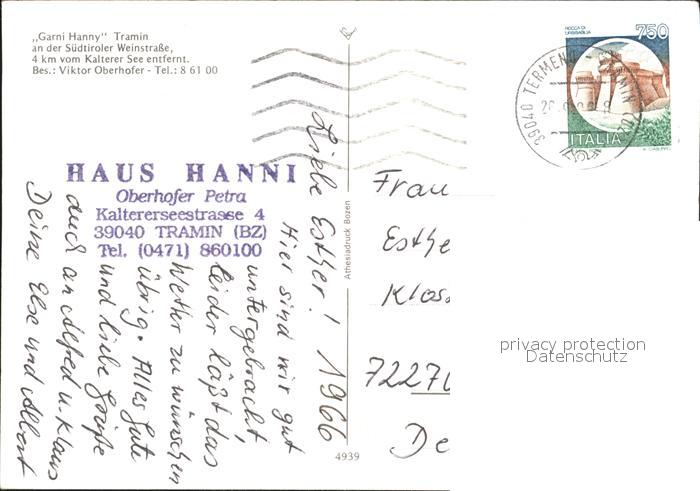 „Garni Hanny" Tramin
an der Südtiroler Weinstraße,
4 km vom Kalterer See entfernt.
Bes.: Viktor Oberhofer - Tel.: 8 61 00
HAUS HANNI
Oberhofer Petra
Kaltererseestrasse 4
39040 TRAMIN (BZ)
Tel. (0471) 860100
Liebe Esther! 1966
Hier sind wir gut
untergebracht,
leider läßt das
Wetter zu wünschen
übrig. Alles Gute
und liebe Grüße
auch an Alfred u. Klaus
Deine Else und Albert
Athesiadruck Bozen
4939
ROCCA DI
URBISAGLIA
750
ITALIA
39040 TERMENO
Frau
Esthe
Klos
7227
De
privacy protection
Datenschutz